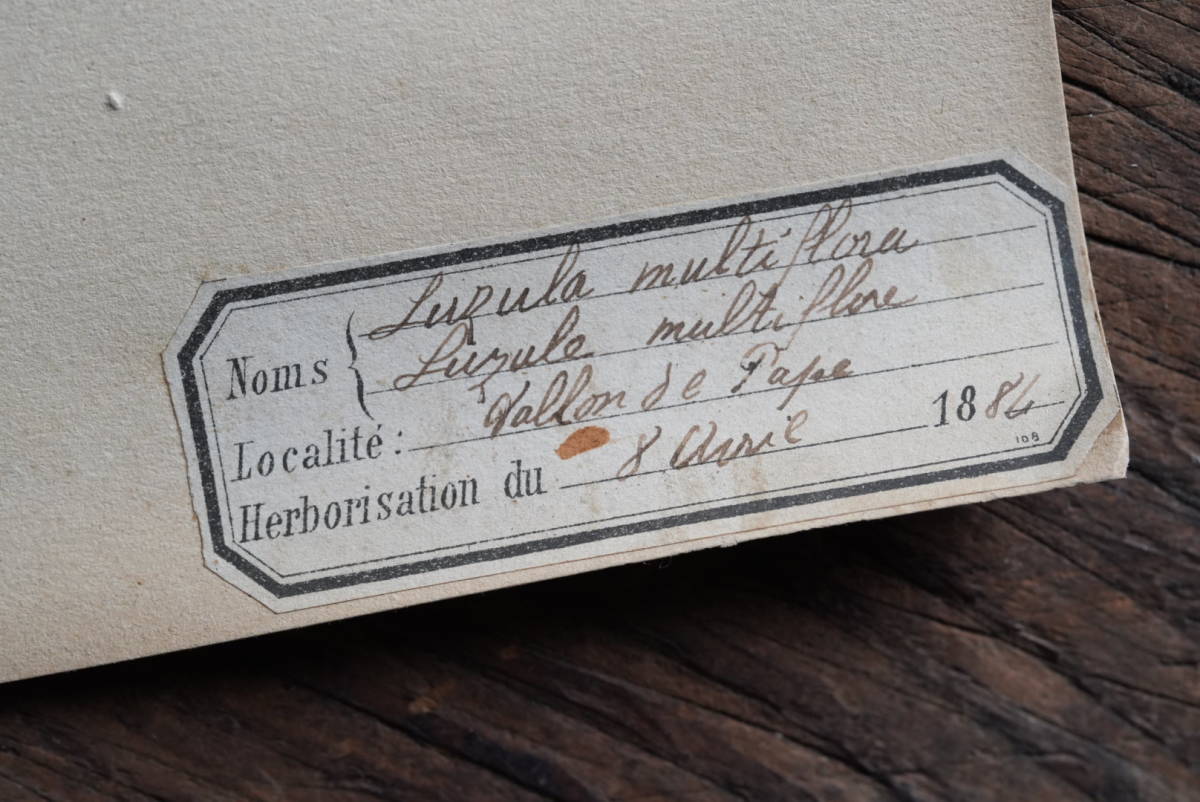 Noms { Luzula multiflora
Luzule multiflore
Localité: Vallon de Pape
Herborisation du 8 Avril 1884
108